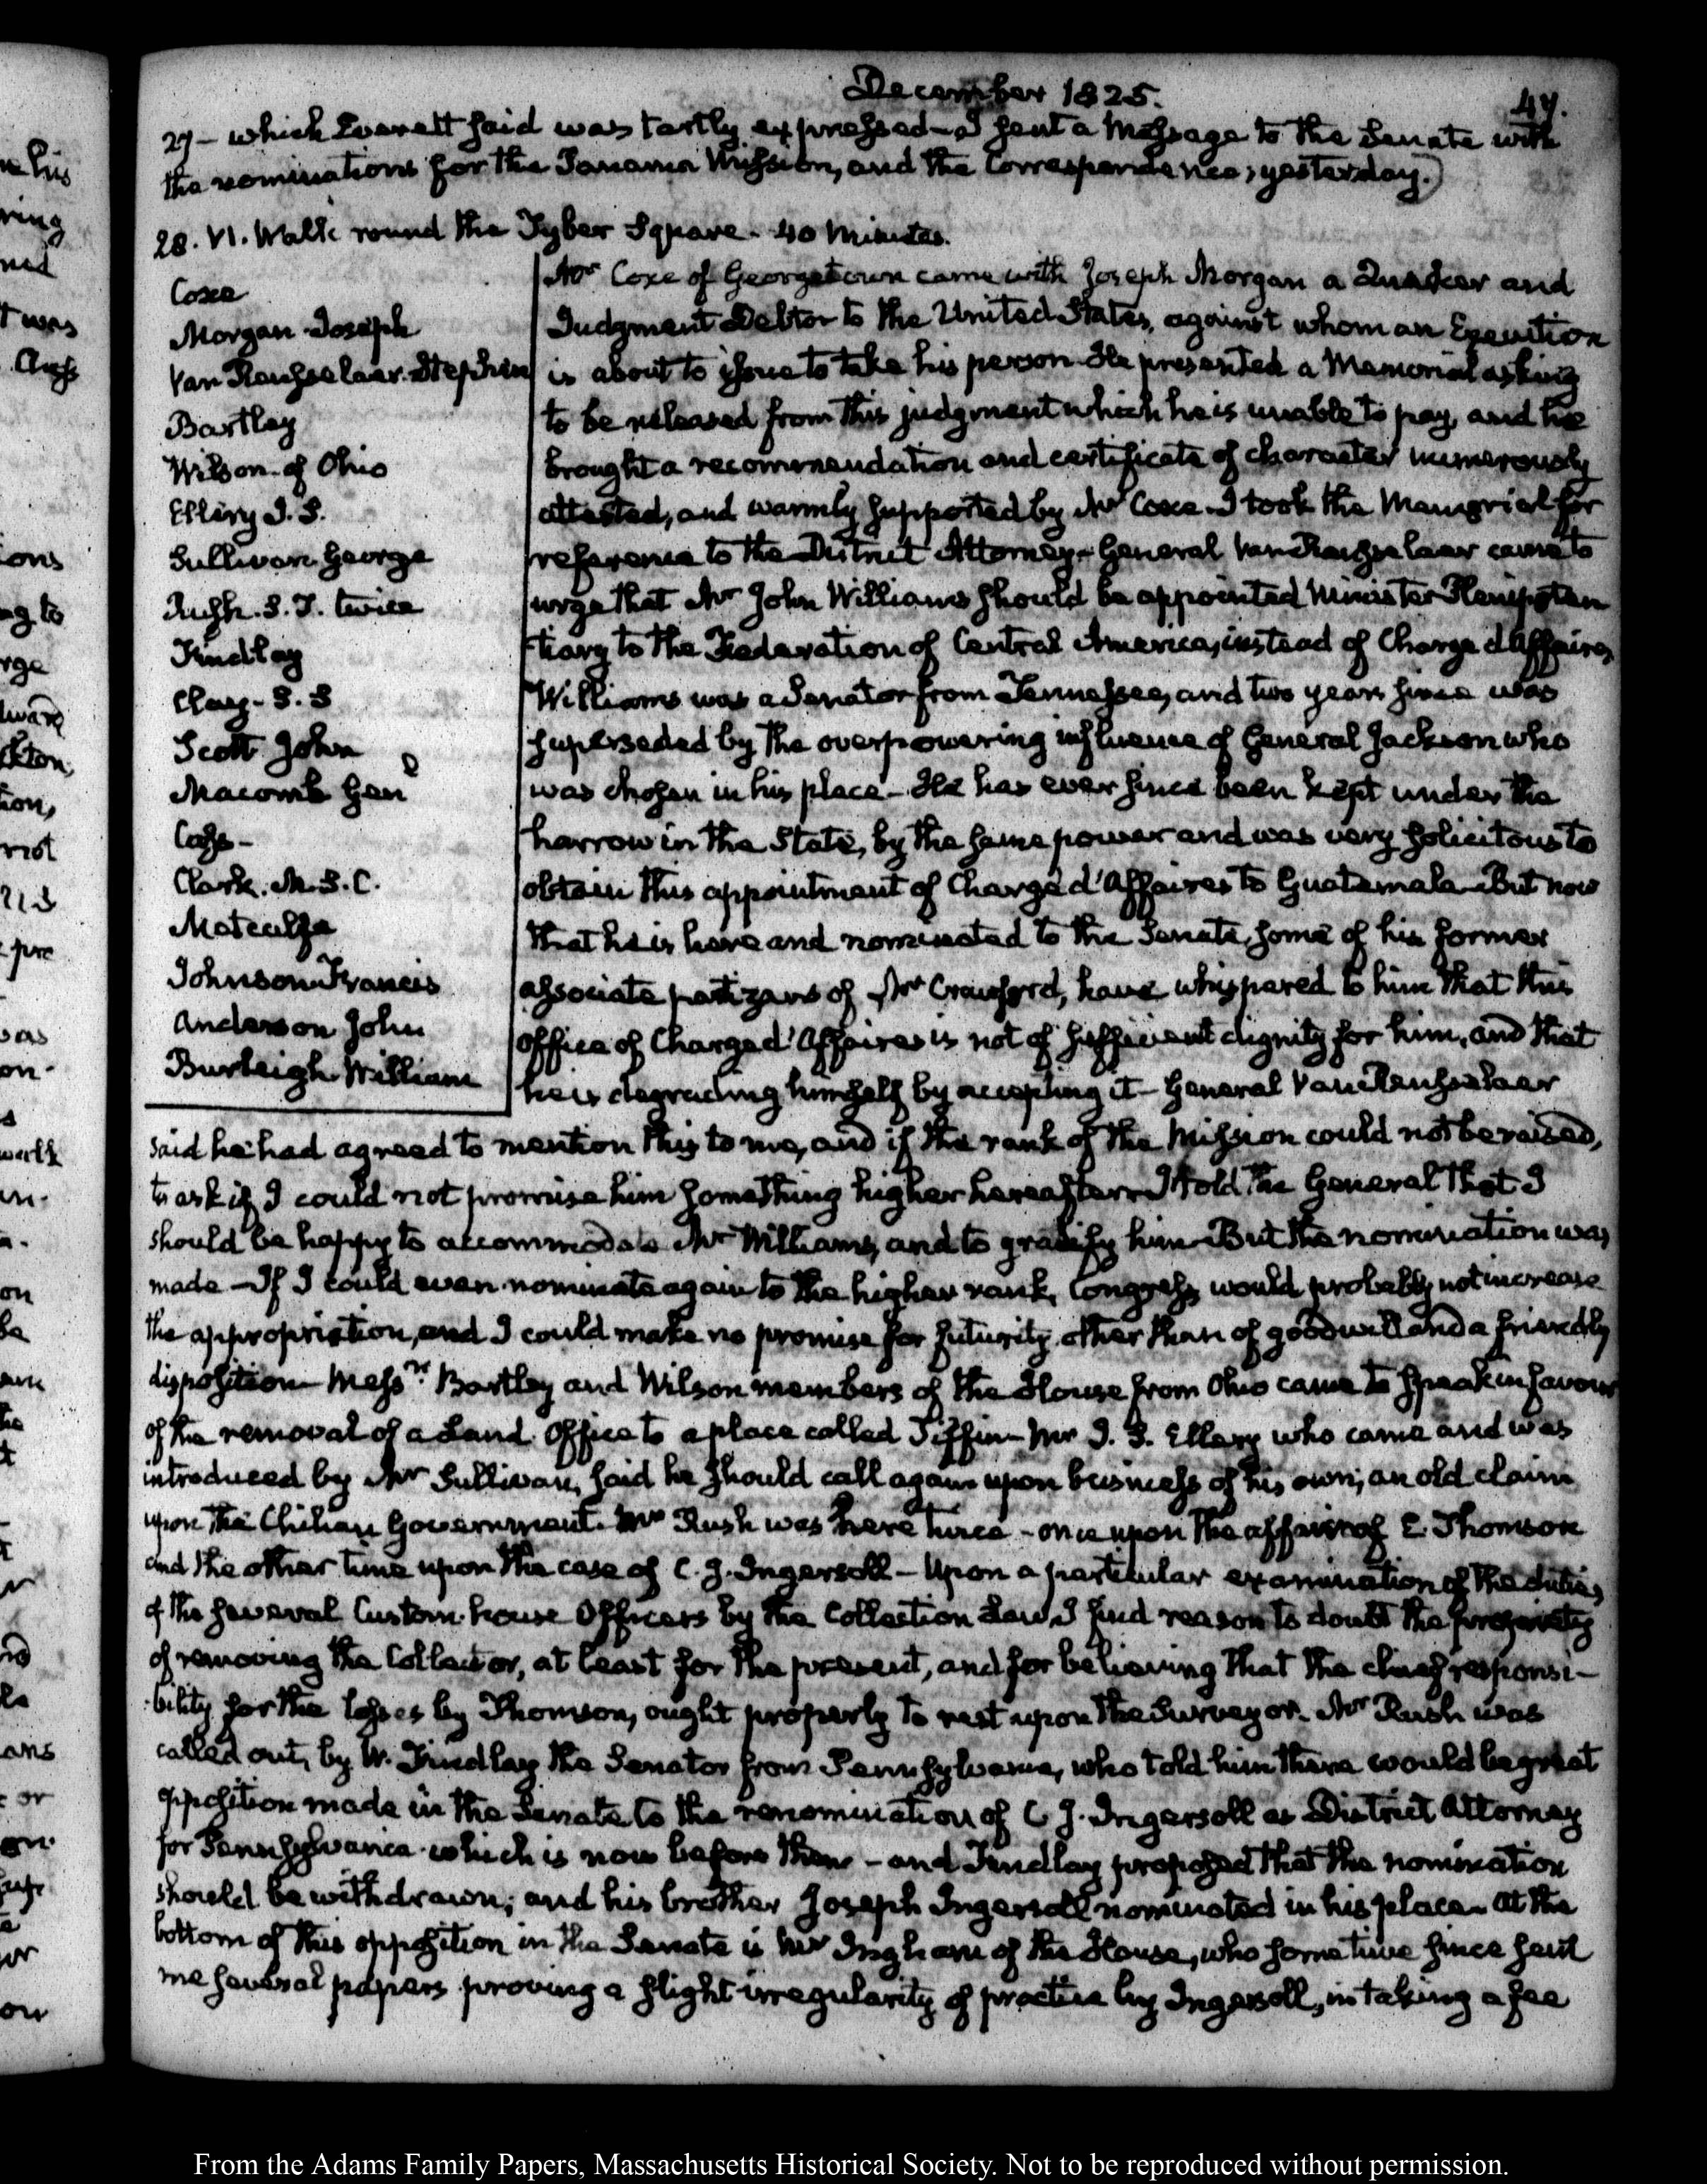 December 1825.
47.
27 – which Everett said was tartly expressed – I sent a Message to the Senate with
the nominations for the Panama Mission, and the Correspondence, yesterday.)
28. VI. Walk round the Tyber Square. 40 Minutes.
Coxe
Morgan Joseph
Van Rensselaer. Stephen
Bartley
Wilson. of Ohio
Ellery I. S.
Sullivan George
Rush. S. T. twice
Findlay
Clay – S. S
Scott John
Macomb Genl
Cass –
Clark. M. S. C.
Metcalfe
Johnson Francis
Anderson John
Burleigh William
Mr Coxe of Georgetown came with Joseph Morgan a Quaker and
Judgment Debtor to the United States, against whom an Execution
is about to issue to take his person. He presented a Memorial asking
to be released from this judgment which he is unable to pay, and he
brought a recommendation and certificate of character numerously
attested, and warmly supported by Mr Coxe. I took the Memorial for
reference to the District Attorney – General Van Rensselaer came to
urge that Mr John Williams should be appointed Minister Plenipoten
tiary to the Federation of Central America, instead of Chargé d'Affaires,
Williams was a Senator from Tennessee, and two years since was
superseded by the overpowering influence of General Jackson who
was chosen in his place – He has ever since been kept under the
harrow in the State, by the same power and was very solicitous to
obtain this appointment of Chargé d'Affaires to Guatemala – But now
that he is here and nominated to the Senate, some of his former
associate partizans of Mr Crawford, have whispered to him that this
Office of Chargé d'Affaires is not of sufficient dignity for him, and that
he is degrading himself by accepting it – General Van Rensselaer
said he had agreed to mention this to me, and if the rank of the Mission could not be raised,
to ask if I could not promise him something higher hereafter – I told the General that I
should be happy to accommodate Mr Williams, and to gratify him – But the nomination was
made – If I could even nominate again to the higher rank, Congress would probably not increase
the appropriation, and I could make no promise for futurity other than of goodwill and a friendly
disposition – Messrs. Bartley and Wilson members of the House from Ohio came to speak in favour
of the removal of a Land Office to a place called Tiffin – Mr I. S. Ellery who came and was
introduced by Mr Sullivan, said he should call again upon business of his own; an old claim
upon the Chilian Government. Mr Rush was here twice – once upon the affair of E. Thomson
and the other time upon the case of C. J. Ingersoll – Upon a particular examination of the duties
of the several Custom-house Officers by the Collection Law, I find reason to doubt the propriety
of removing the Collector, at least for the present, and for believing that the chief responsi–
bility for the losses by Thomson, ought properly to rest upon the Surveyor. Mr Rush was
called out, by W. Findlay the Senator from Pennsylvania, who told him there would be great
opposition made in the Senate to the renomination of C J. Ingersoll as District Attorney
for Pennsylvania which is now before them – and Findlay proposed that the nomination
should be withdrawn; and his brother Joseph Ingersoll nominated in his place – At the
bottom of this opposition in the Senate is Mr Ingham of the House, who some time since sent
me several papers proving a slight irregularity of practice by Ingersoll, in taking a fee
From the Adams Family Papers, Massachusetts Historical Society. Not to be reproduced without permission.